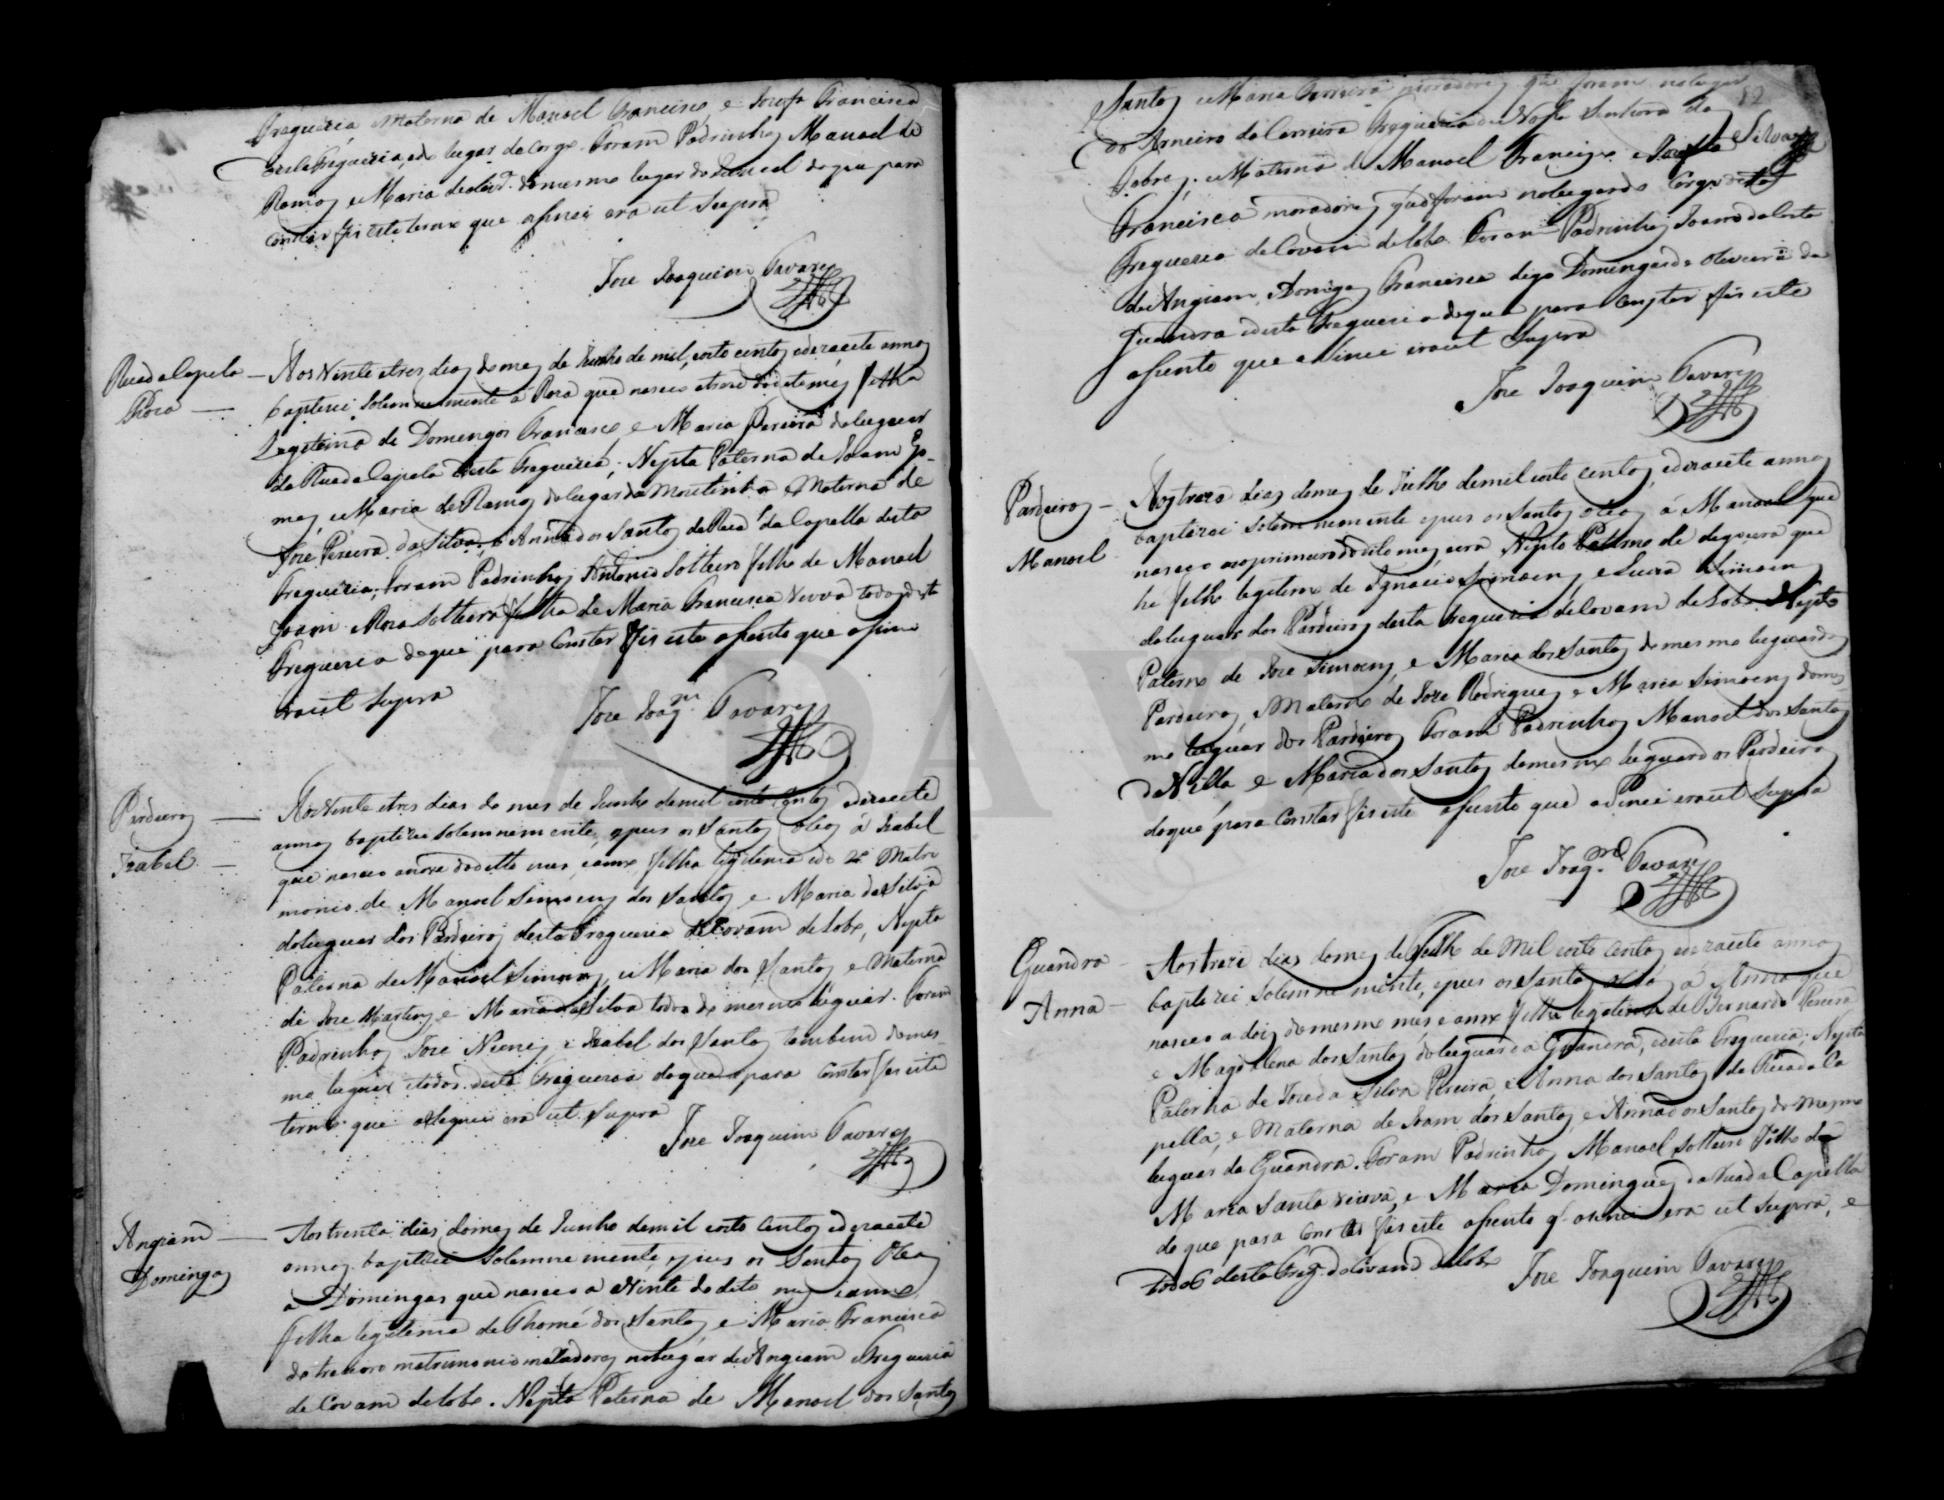 Freguezia Materna de Manoel Francisco, e Josefa Francisca
desta Freguezia, do lugar do Corgo. Foram Padrinhos Manoel de
Ramos, e Maria do mesmo lugar do de que para
constar fis este termo que asinei era ut supra
Joze Joaquim Tavares
Rua da Capela
Roza
Aos vinte e tres dias do mes de Junho de mil, oito centos e dezasete annos
baptizei solemnemente a Roza que nasceo a treze do dito mes, filha
Legitima de Domingos Francisco, e Maria Pereira do luguar
da Rua da Capela desta Freguezia; Nepta Paterna de Joam Go-
mes, e Maria de Ramos do lugar da Moutinha e Materna de
Joze Pereira da Silva, e Anna dos Santos da Rua da Capella desta
Freguezia; Foram Padrinhos Antonio Solteiro filho de Manoel
Joam. Roza Solteira filha de Maria Francisca Viuva todos desta
Freguezia de que para Constar fis este asento que asinei
era ut supra
Joze Joaq.m Tavares
Pardieiros
Izabel
Aos vinte e tres dias do mes de Junho de mil oito centos e dezasete
annos baptizei solemnemente, e pus os Santos oleos á Izabel
que nasceo a nove do ditto mes, e anno filha legitima do 2º Matri
monio de Manoel Simoens dos Santos e Maria da Silva
do luguar dos Pardieiros desta Freguezia de Covam de Lobo, Nepta
Paterna de Manoel Simoens, e Maria dos Santos e Materna
de Joze Martins e Maria da Silva todos do mesmo luguar. Foram
Padrinhos Joze Nunes, e Izabel dos Santos tambem do mes-
mo luguar e todos desta Freguezia de que para constar fis este
termo que asignei era ut supra
Joze Joaquim Tavares
Angiam
Domingas
Aos trenta dias do mes de Junho de mil oito centos e dezasete
annos baptizei solemnemente, e pus os Santos Oleos
a Domingas que nasceo a vinte do dito mes e anno
filha legitima de Thomé dos Santos, e Maria Francisca
do treceiro matrimonio moradores no lugar de Angiam Freguezia
de Covam de Lobo. Nepta Paterna de Manoel dos Santos
82
Santos e Maria Ferreira moradores que foram no lugar
do Arneiro da Carreira Freguezia de Nossa Senhora da
Silva
e Materna de Manoel Francisco e Josefa
Francisca moradores que foram no lugar do Corgo desta
Freguezia de Covam de Lobo. Foram Padrinhos Joam da Costa
de Angiam, Domingas Francisca digo Domingas de Oliveira da
Guandra desta Freguezia de que para Constar fis este
asento que asinei era ut supra
Joze Joaquim Tavares
Pardieiros
Manoel
Aos treze dias do mes de Julho de mil oito centos, e dezasete annos
baptizei solemnemente e pus os Santos oleos á Manoel que
nasceo ao primeiro do dito mes, e era Nepto Paterno de digo era que
he filho legitimo de Ignacio Simoens, e Luiza Simoens
do luguar dos Pardieiros desta Freguezia de Covam de Lobo. Nepto
Paterno de Joze Simoens, e Maria dos Santos do mesmo luguar dos
Pardieiros, e Materno de Joze Rodrigues e Maria Simoens do mes-
mo luguar dos Pardieiros Foram Padrinhos Manoel dos Santos
da Vella e Maria dos Santos do mesmo luguar dos Pardieiros
do que para Constar fis este asento que asinei era ut supra
Joze Joaq.m Tavares
Guandra
Anna
Aos treze dias do mes de Julho de mil oito centos e dezasete annos
baptizei solemnemente, e pus os Santos oleos á Anna que
nasceo a dois do mesmo mes e anno filha legitima de Bernardo Pereira
e Magdalena dos Santos do luguar da Guandra, desta Freguezia; Nepta
Paterna de Joze da Silva Pereira, e Anna dos Santos da Rua da Ca
pella, e Materna de Joam dos Santos, e Anna dos Santos do mesmo
luguar da Guandra. Foram Padrinhos Manoel Solteiro Filho de
Maria Santa Viuva, e Maria Domingues da Rua da Capella
de que para Constar fis este asento q. asinei era ut supra, e
todos desta Freg.ª de Covam de Lobo
Joze Joaquim Tavares
ADAVR